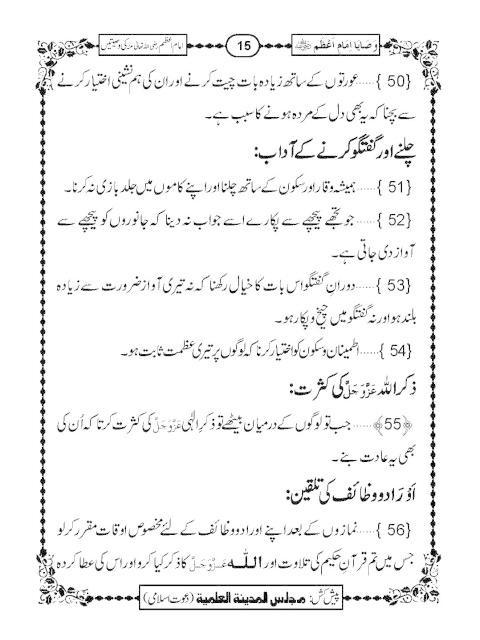 وصایا امام اعظم رضی اللہ عنہ
15
امام اعظم رضی اللہ تعالٰی عنہ کی وصیتیں
{50 }......عورتوں کے ساتھ زیادہ بات چیت کرنے اور ان کی ہم نشینی اختیار کرنے
سے بچنا کہ یہ بھی دل کے مردہ ہونے کا سبب ہے۔
چلنے اور گفتگو کرنے کے آداب:
{51 }......ہمیشہ وقار اور سکون کے ساتھ چلنا اور اپنے کاموں میں جلد بازی نہ کرنا۔
{52 }......جو تجھے پیچھے سے پکارے اسے جواب نہ دینا کہ جانوروں کو پیچھے سے
آواز دی جاتی ہے۔
{53 }......دورانِ گفتگو اس بات کا خیال رکھنا کہ نہ تیری آواز ضرورت سے زیادہ
بلند ہو اور نہ گفتگو میں چیخ و پکار ہو۔
{54 }......اطمینان و سکون کو اختیار کرنا کہ لوگوں پر تیری عظمت ثابت ہو۔
ذکر اللہ عَزَّوَجَلَّ کی کثرت:
﴿55﴾......جب تو لوگوں کے درمیان بیٹھے تو ذکرِ الٰہی عَزَّوَجَلَّ کی کثرت کرتا کہ اُن کی
بھی یہ عادت بنے۔
اَوْرَاد و وظائف کی تلقین:
{56 }......نمازوں کے بعد اپنے اوراد و وظائف کے لئے مخصوص اوقات مقرر کر لو
جس میں تم قرآنِ حکیم کی تلاوت اور اللہ عَزَّوَجَلَّ کا ذکر کیا کرو اور اس کی عطا کردہ
پیش کش: مجلس المدینة العلمیة (دعوتِ اسلامی)